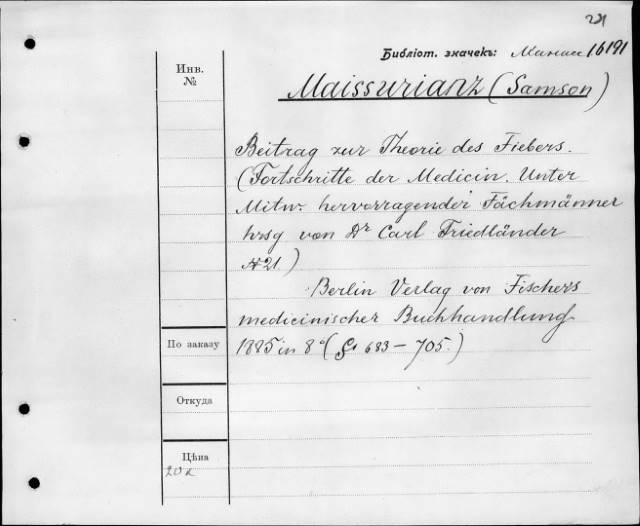 221
Библіот. значекъ: 16191
Инв.
№
Maissurianz (Samson)
Beitrag zur Theorie des Fiebers.
(Fortschritte der Medicin. Unter
Mitw. hervorragender Fächmänner
hrsg von Dr Carl Friedländer
№21)
Berlin Verlag von Fischers
medicinischer Buchhandlung
По заказу
1885 in 8° (S. 683-705.)
Откуда
Цѣна
20к